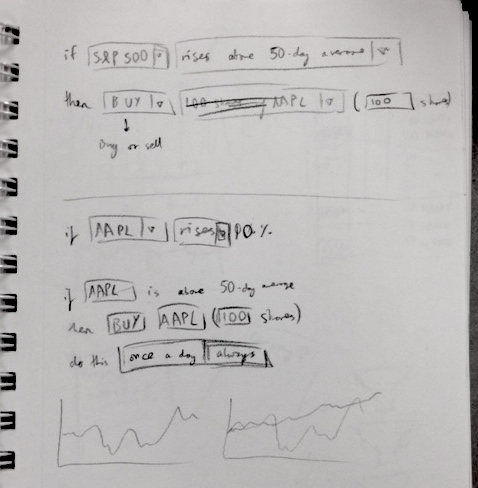 if S&P 500 rises above 50-day average
then BUY AAPL (100 shares)
buy or sell
if AAPL rises 10%
if AAPL is above 50-day average
then BUY AAPL (100 shares)
do this once a day always